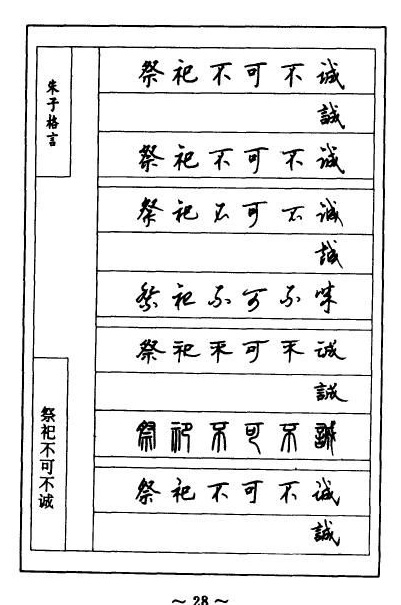 朱子格言
祭祀不可不诚
誠
祭祀不可不诚
祭祀不可不诚
誠
祭祀不可不诚
祭祀不可不诚
誠
祭祀不可不誠
祭祀不可不诚
誠
祭祀不可不诚
~ 28 ~